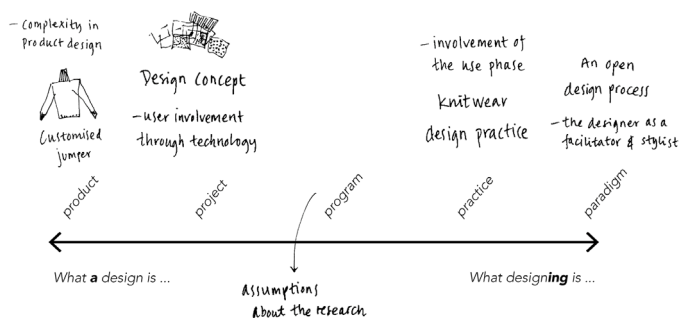 - Complexity in
product design
Customised
jumper
Design Concept
- user involvement
through technology
- involvement of
the use phase
knitwear
design practice
An open
design process
- the designer as a
facilitator & stylist
product
project
program
practice
paradigm
What a design is ...
What designing is ...
assumptions
about the research